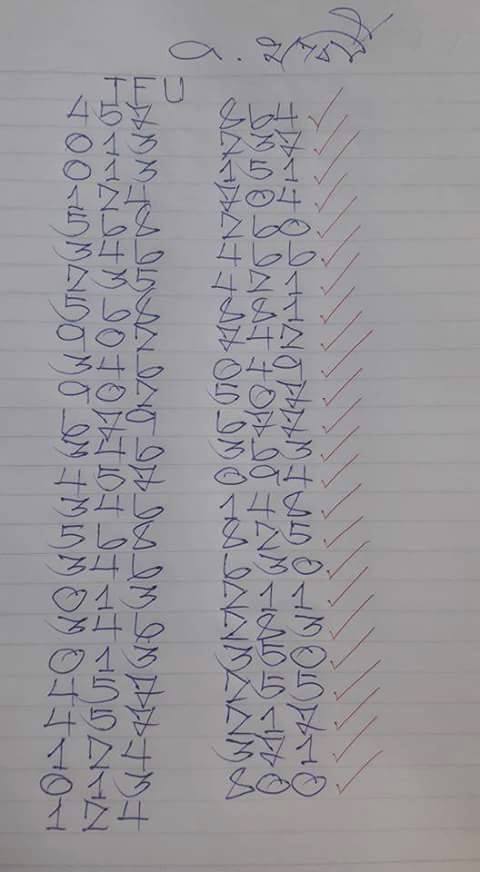 4 5 7 8 6 4 ✓
0 1 3 2 3 7 ✓
0 1 3 1 5 1 ✓
1 2 4 7 0 4 ✓
5 6 8 2 6 0 ✓
3 4 6 4 6 6 ✓
2 3 5 4 2 1 ✓
5 6 8 8 8 1 ✓
9 0 2 7 4 2 ✓
3 4 6 0 4 9 ✓
9 0 2 5 0 7 ✓
6 7 9 6 7 7 ✓
3 4 6 3 6 3 ✓
4 5 7 0 9 4 ✓
3 4 6 1 4 8 ✓
5 6 8 8 2 5 ✓
3 4 6 6 3 0 ✓
0 1 3 2 1 1 ✓
3 4 6 2 8 3 ✓
0 1 3 3 5 0 ✓
4 5 7 2 5 5 ✓
4 5 7 2 1 7 ✓
1 2 4 3 7 1 ✓
0 1 3 8 0 0 ✓
1 2 4